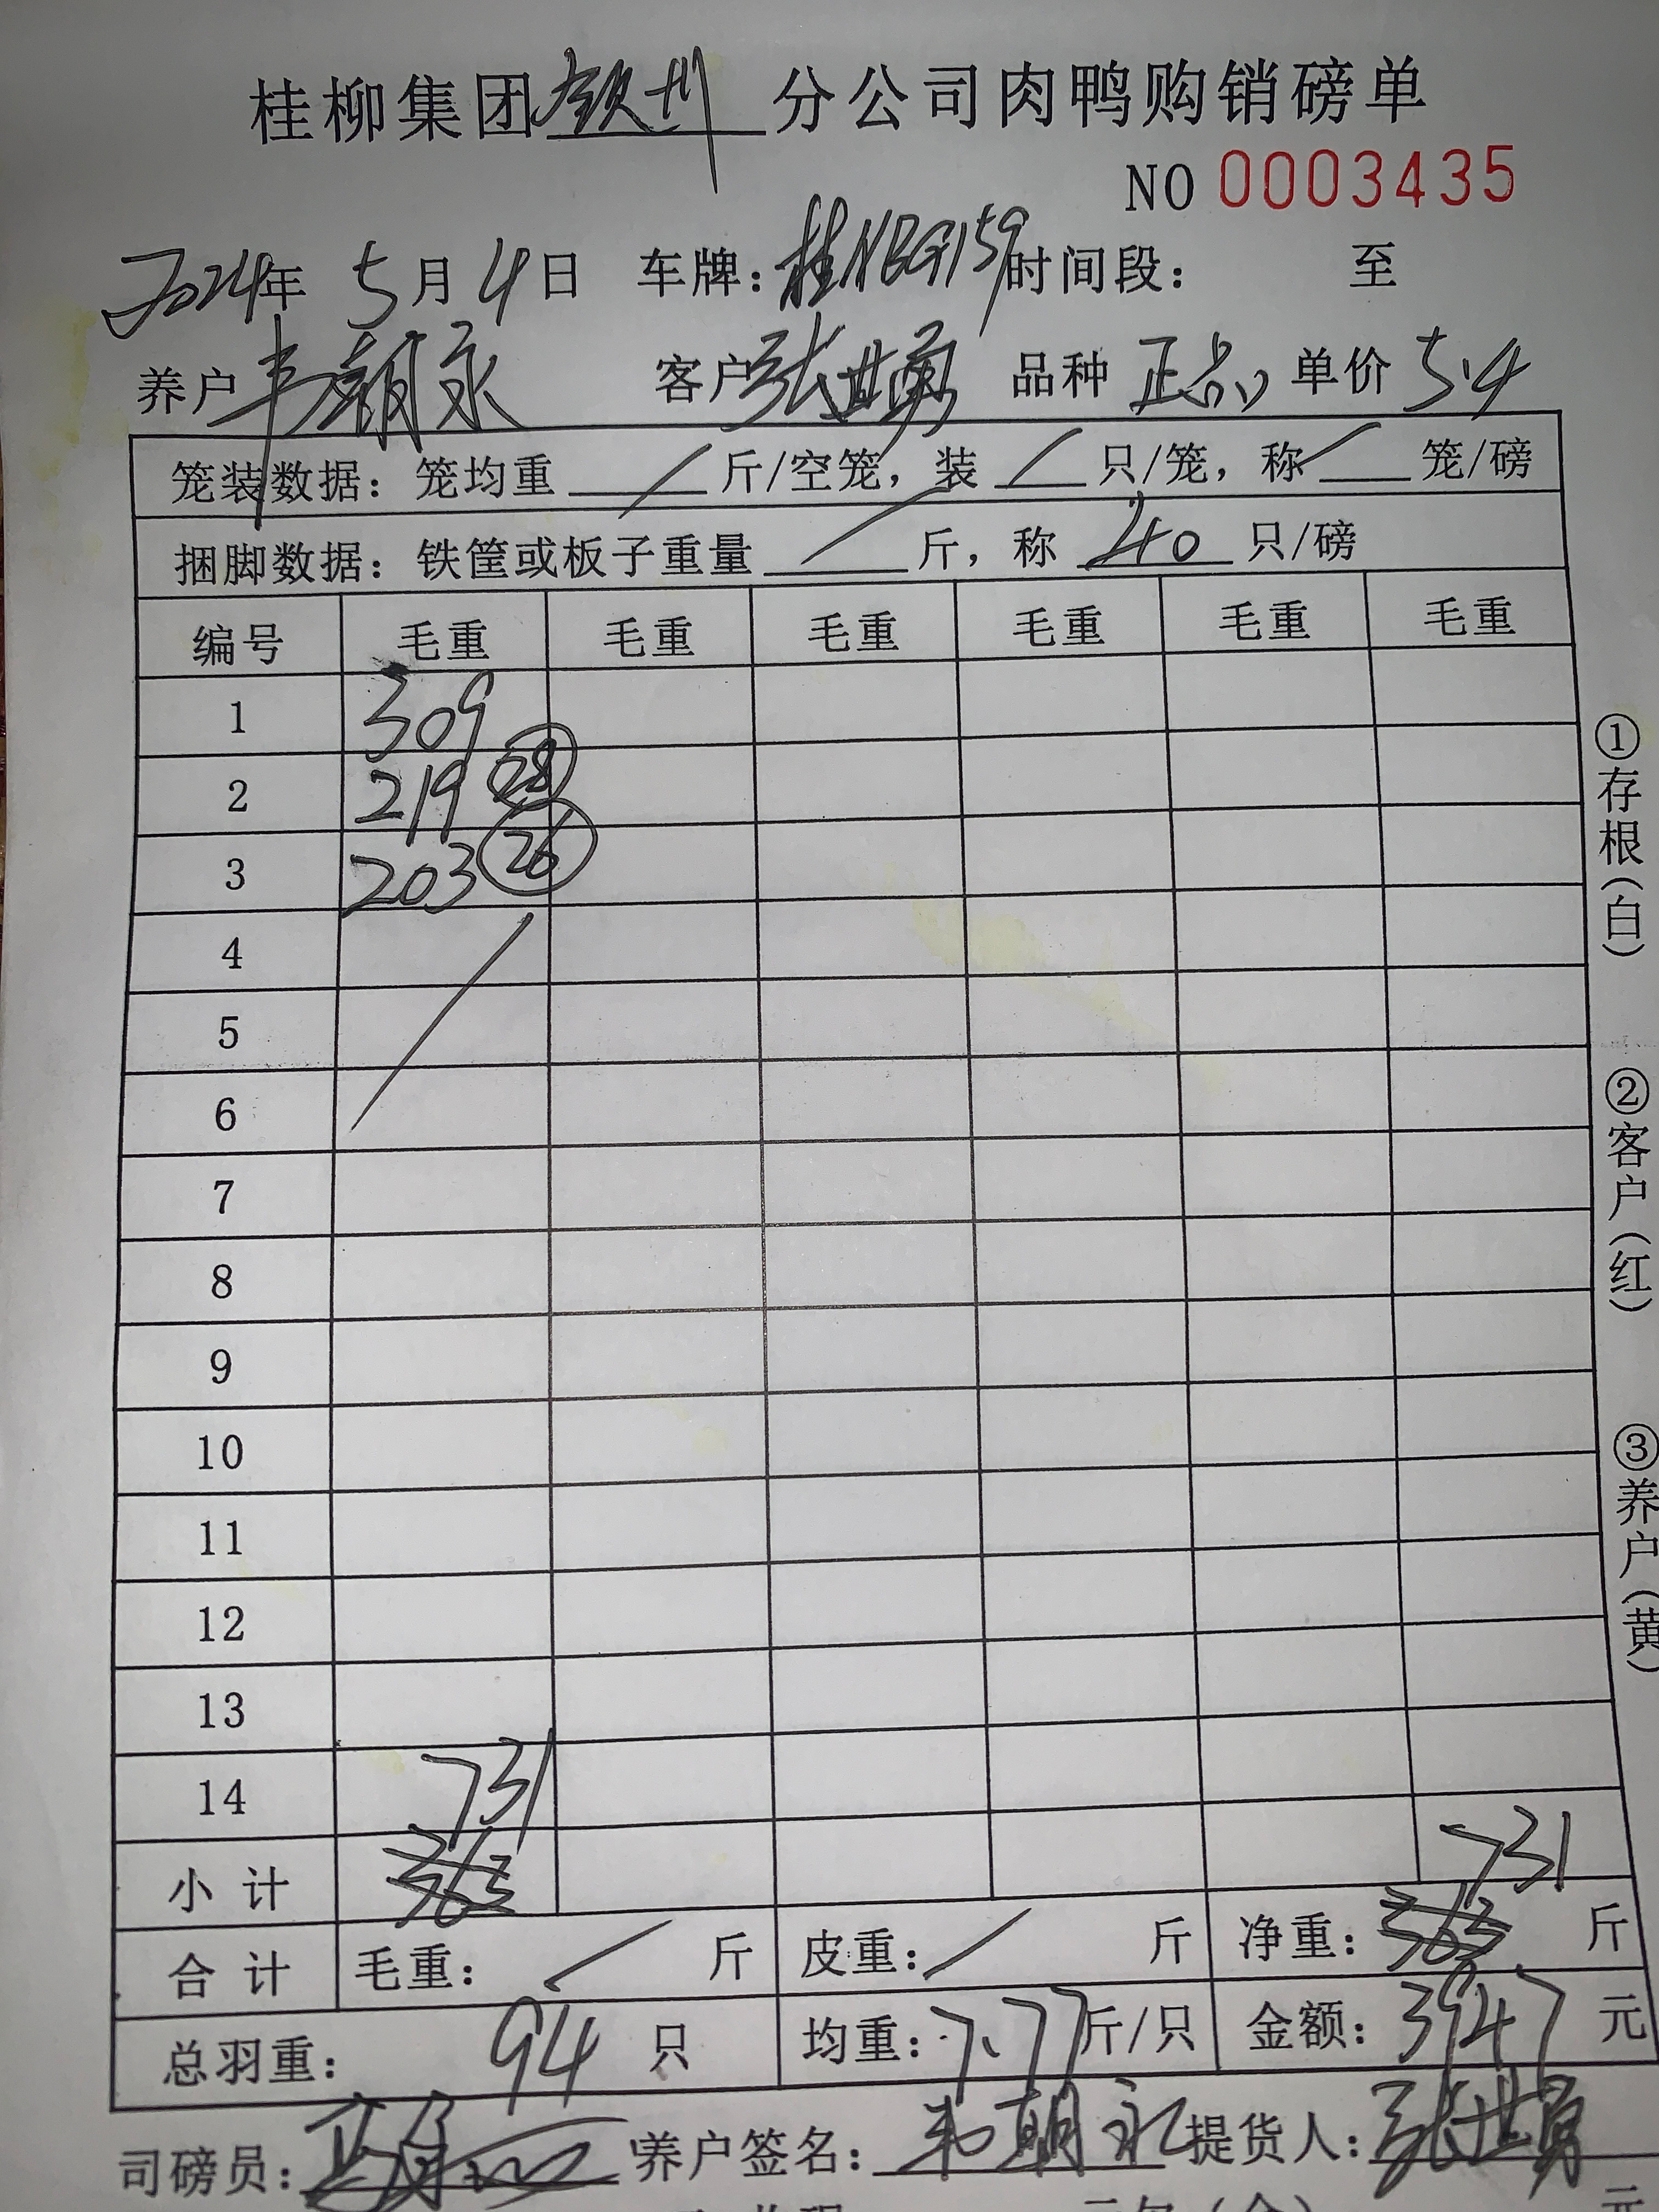 桂柳集团钦州分公司肉鸭购销磅单
NO 0003435
2024年 5月 4日 车牌：桂NBG159 时间段： 至
养户 韦朝永 客户 张世勇 品种 正品 单价 5.4
笼装数据：笼均重 / 斤/空笼，装 / 只/笼，称 / 笼/磅
捆脚数据：铁筐或板子重量 / 斤，称 40 只/磅
编号 毛重 毛重 毛重 毛重 毛重 毛重
1 309
2 219 28
3 203 26
4
5
6
7
8
9
10
11
12
13
14 731
小计 363 731
合计 毛重： / 斤 皮重： / 斤 净重：363 斤
总羽重： 94 只 均重：7.77斤/只 金额：3947元
司磅员： 养户签名：韦朝永 提货人：张世勇
元
①存根（白）
②客户（红）
③养户（黄）